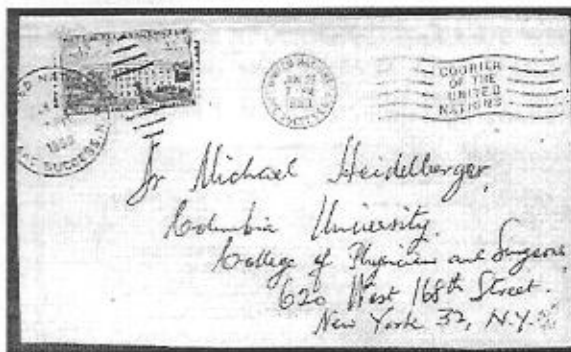 COURIER
OF THE
UNITED
NATIONS
LAKE SUCCESS, N
Dr Michael Heidelberger,
Columbia University.
College of Physicians and Surgeons
620 West 168th Street.
New York 32, N.Y.